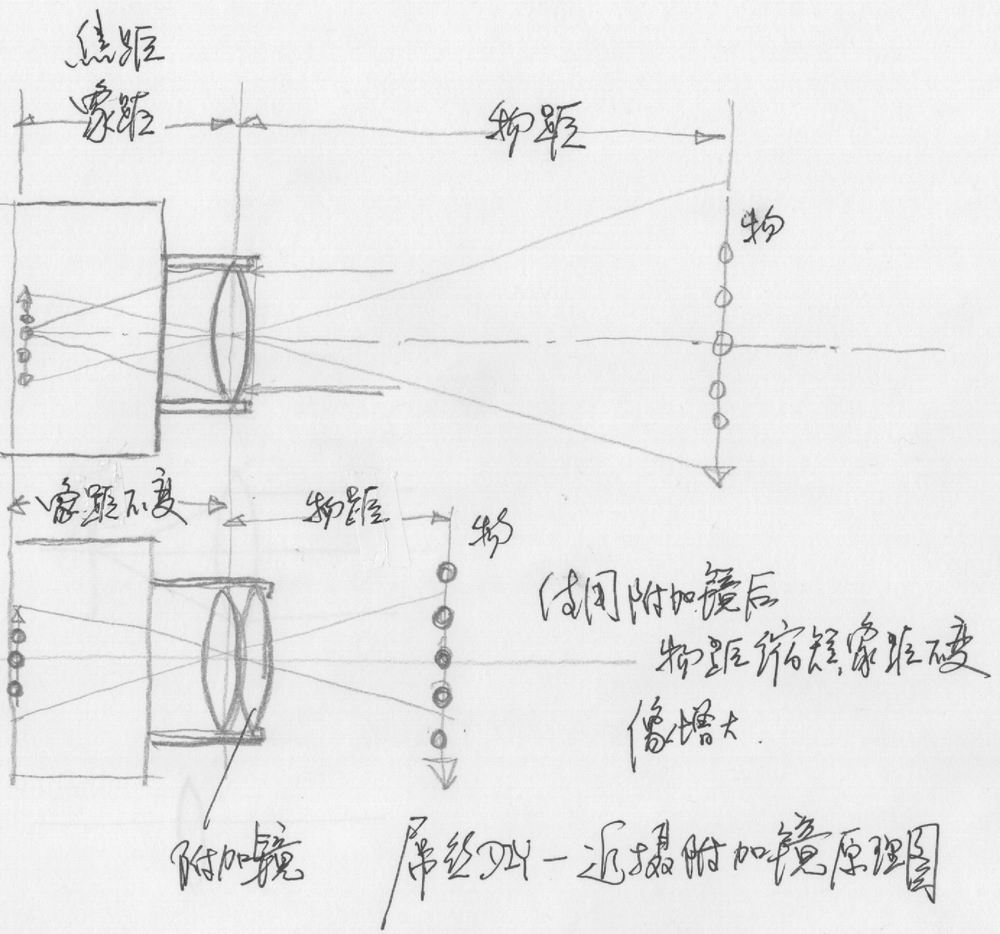 焦距
象距
物距
物
象距不变
物距
物
使用附加镜后
物距缩短象距不变
像增大.
附加镜
屌丝DIY—近摄附加镜原理图